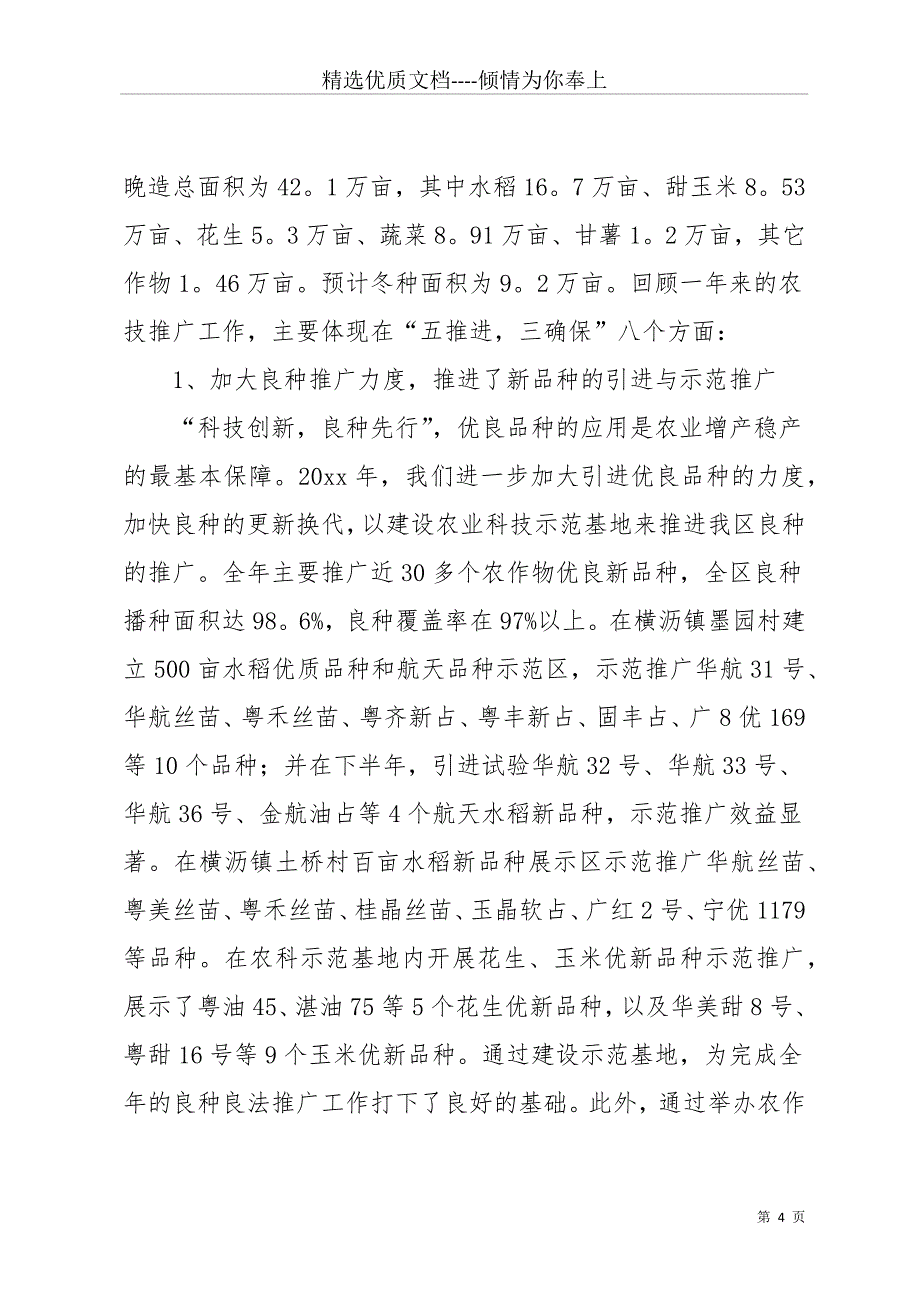 精选优质文档----倾情为你奉上
晚造总面积为 42。1 万亩，其中水稻 16。7 万亩、甜玉米 8。53
万亩、花生 5。3 万亩、蔬菜 8。91 万亩、甘薯 1。2 万亩，其它
作物 1。46 万亩。预计冬种面积为 9。2 万亩。回顾一年来的农
技推广工作，主要体现在“五推进，三确保”八个方面：
1、加大良种推广力度，推进了新品种的引进与示范推广
“科技创新，良种先行”，优良品种的应用是农业增产稳产
的最基本保障。20xx 年，我们进一步加大引进优良品种的力度，
加快良种的更新换代，以建设农业科技示范基地来推进我区良种
的推广。全年主要推广近 30 多个农作物优良新品种，全区良种
播种面积达 98。6%，良种覆盖率在 97%以上。在横沥镇墨园村建
立 500 亩水稻优质品种和航天品种示范区，示范推广华航 31 号、
华航丝苗、粤禾丝苗、粤齐新占、粤丰新占、固丰占、广 8 优 169
等 10 个品种；并在下半年，引进试验华航 32 号、华航 33 号、
华航 36 号、金航油占等 4 个航天水稻新品种，示范推广效益显
著。在横沥镇土桥村百亩水稻新品种展示区示范推广华航丝苗、
粤美丝苗、粤禾丝苗、桂晶丝苗、玉晶软占、广红 2 号、宁优 1179
等品种。在农科示范基地内开展花生、玉米优新品种示范推广，
展示了粤油 45、湛油 75 等 5 个花生优新品种，以及华美甜 8 号、
粤甜 16 号等 9 个玉米优新品种。通过建设示范基地，为完成全
年的良种良法推广工作打下了良好的基础。此外，通过举办农作
第 4 页